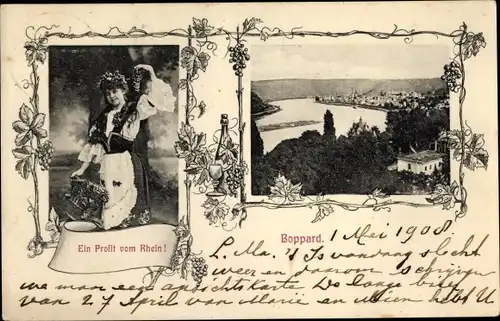 Ein Profit vom Rhein!
Boppard.
1 Mei 1908.
L. Ma. 's Is vandaag slecht
weer en daarom schrijven
we maar een ansichtskaarte De lange brief
van 27 April van Marie en